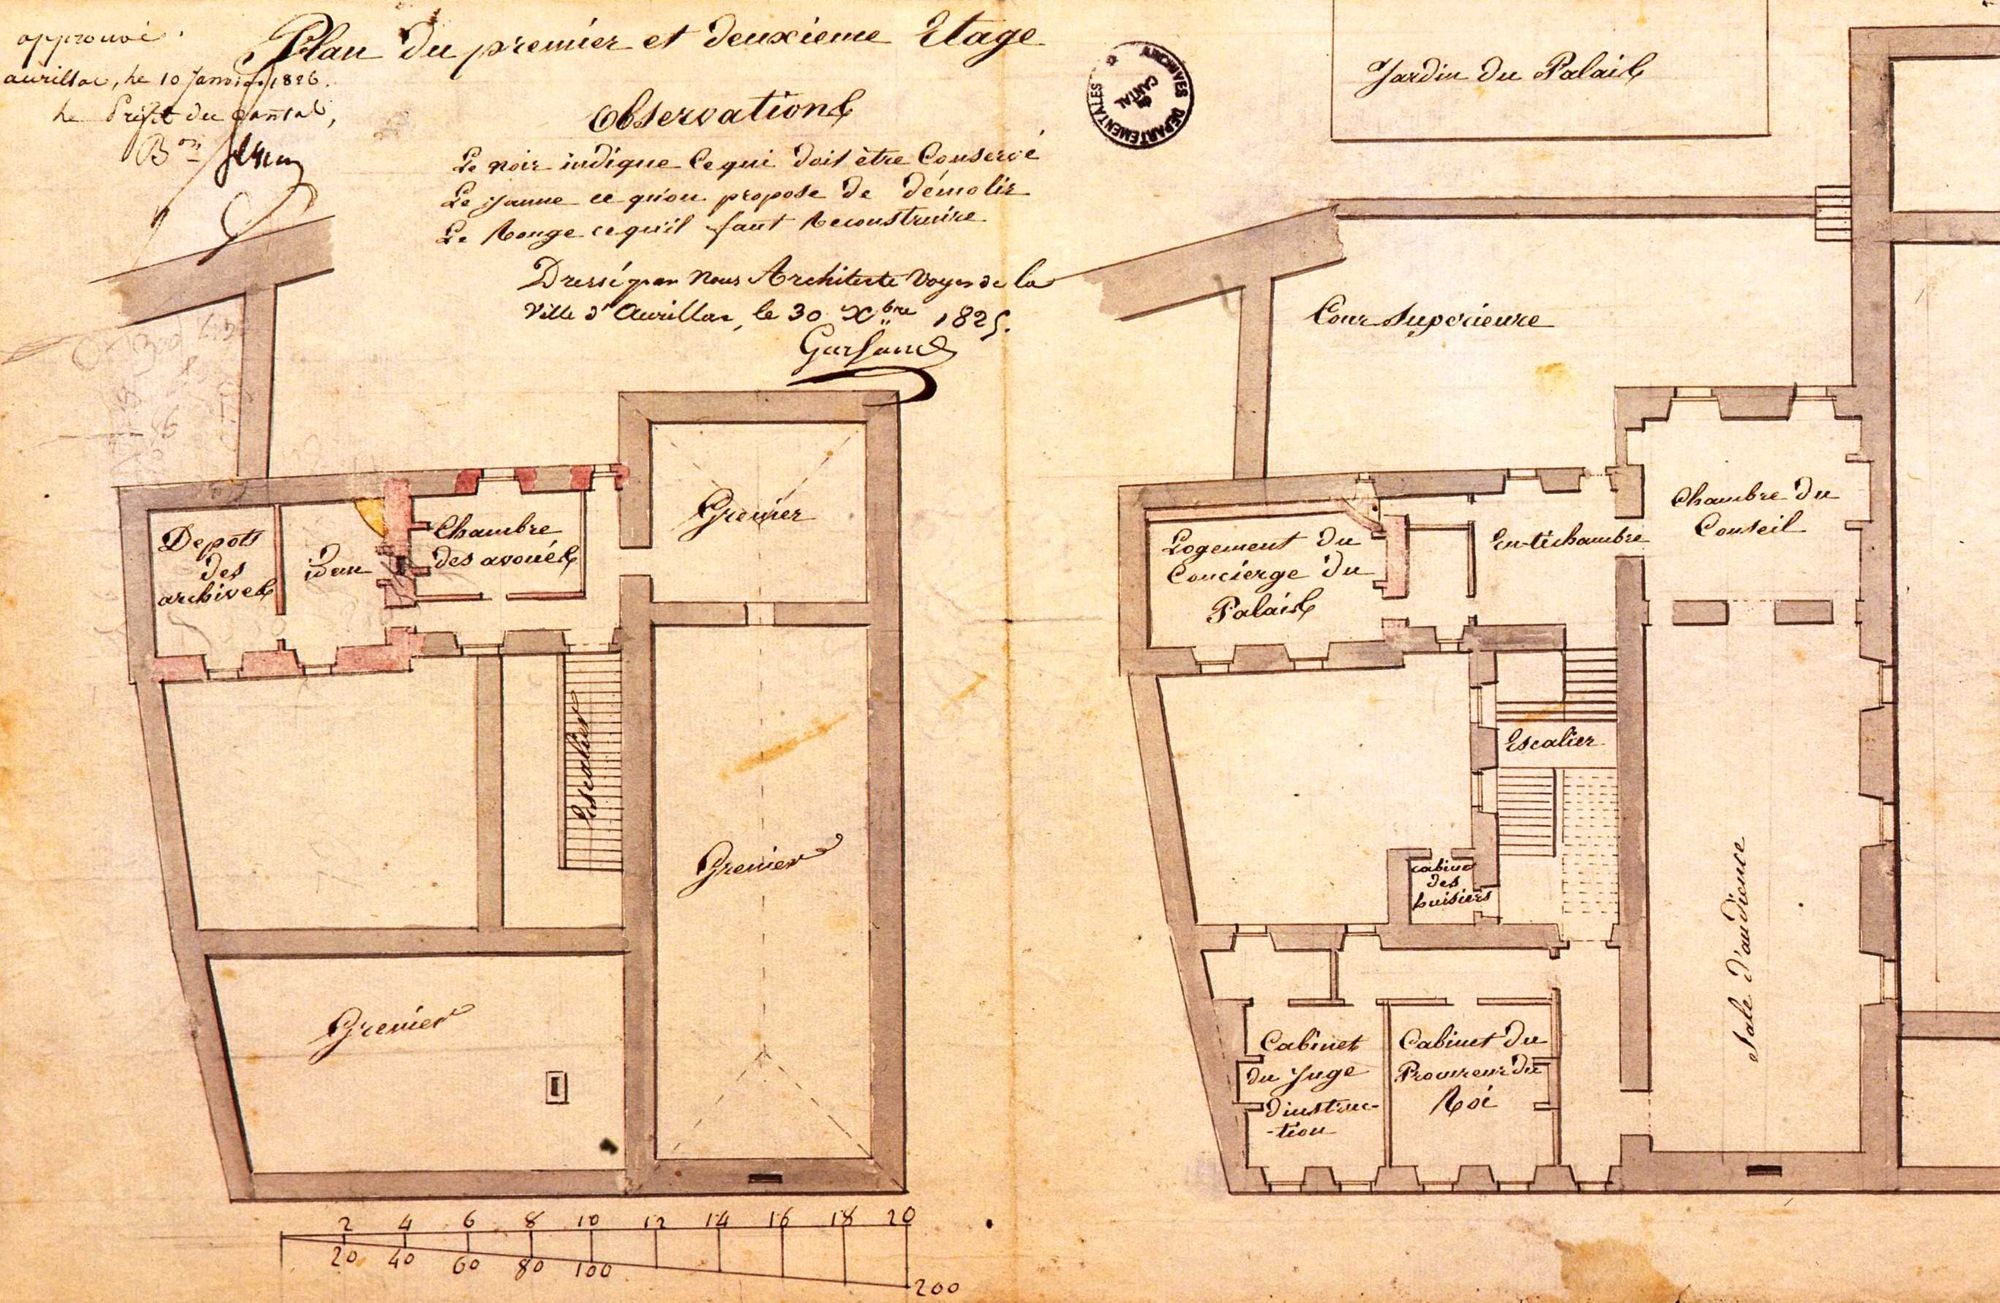 approuvé
aurillac, le 10 Janvier 1826.
le Préfet du Cantal,
Bon
Plan du premier et deuxieme Etage
Observations
Le noir indique ce qui doit être Conservé
Le jaune ce qu'on propose de démolir
Le Rouge ce qu'il faut Reconstruire
Dressé par Nous Architecte Voyer de la
Ville d'Aurillac, le 30 Xbre 1825.
ARCHIVES DEPARTEMENTALES
CANTAL
Jardin du Palais
Cour Superieure
Depots
des
archives
idem
Chambre
des avoués
Grenier
Escalier
Grenier
Grenier
2 4 6 8 10 12 14 16 18 20
20 40 60 80 100 200
Logement du
Concierge du
Palais
Entichambre
Chambre du
Conseil
Escalier
cabinet
des
huisiers
Sale d'audience
Cabinet
du Juge
d'instruc-
-tion
Cabinet du
Procureur du
Roi